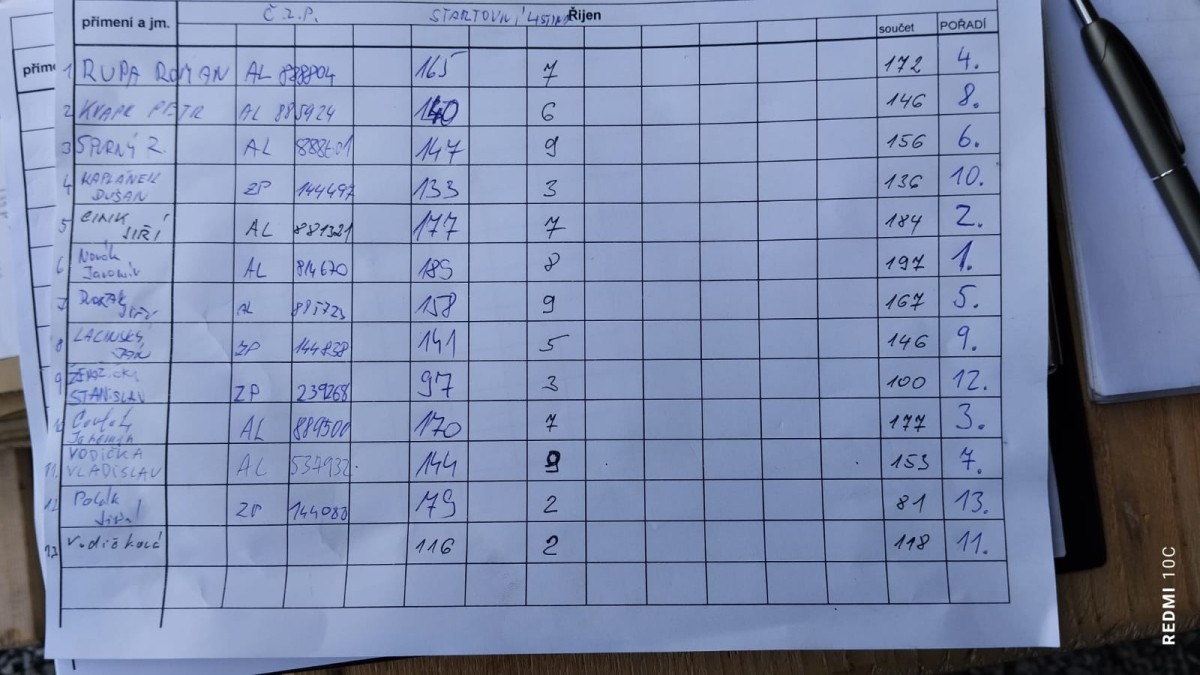 přímení a jm. Č Z.P. STARTOVNÍ LISTINA Říjen součet POŘADÍ
příme
1 RUPA ROMAN AL 888804 165 7 172 4.
2 KVAPK PETR AL 885924 140 6 146 8.
3 SPURNÝ Z. AL 147 9 156 6.
4 KAPLÁNEK DUŠAN ZP 144497 133 3 136 10.
5 CINIK JIŘÍ AL 881321 177 7 184 2.
6 Novák Jaromír AL 814670 189 8 197 1.
7 JIŘÍ AL 885723 158 9 167 5.
8 LACINSKÝ JAN ZP 144838 141 5 146 9.
9 STANISLAV ZP 239268 97 3 100 12.
10 AL 889500 170 7 177 3.
11. VODIČKA VLADISLAV AL 537932. 144 9 153 7.
12 Polák Jiří ZP 144080 79 2 81 13.
13 Vodičková 116 2 118 11.
REDMI 10C